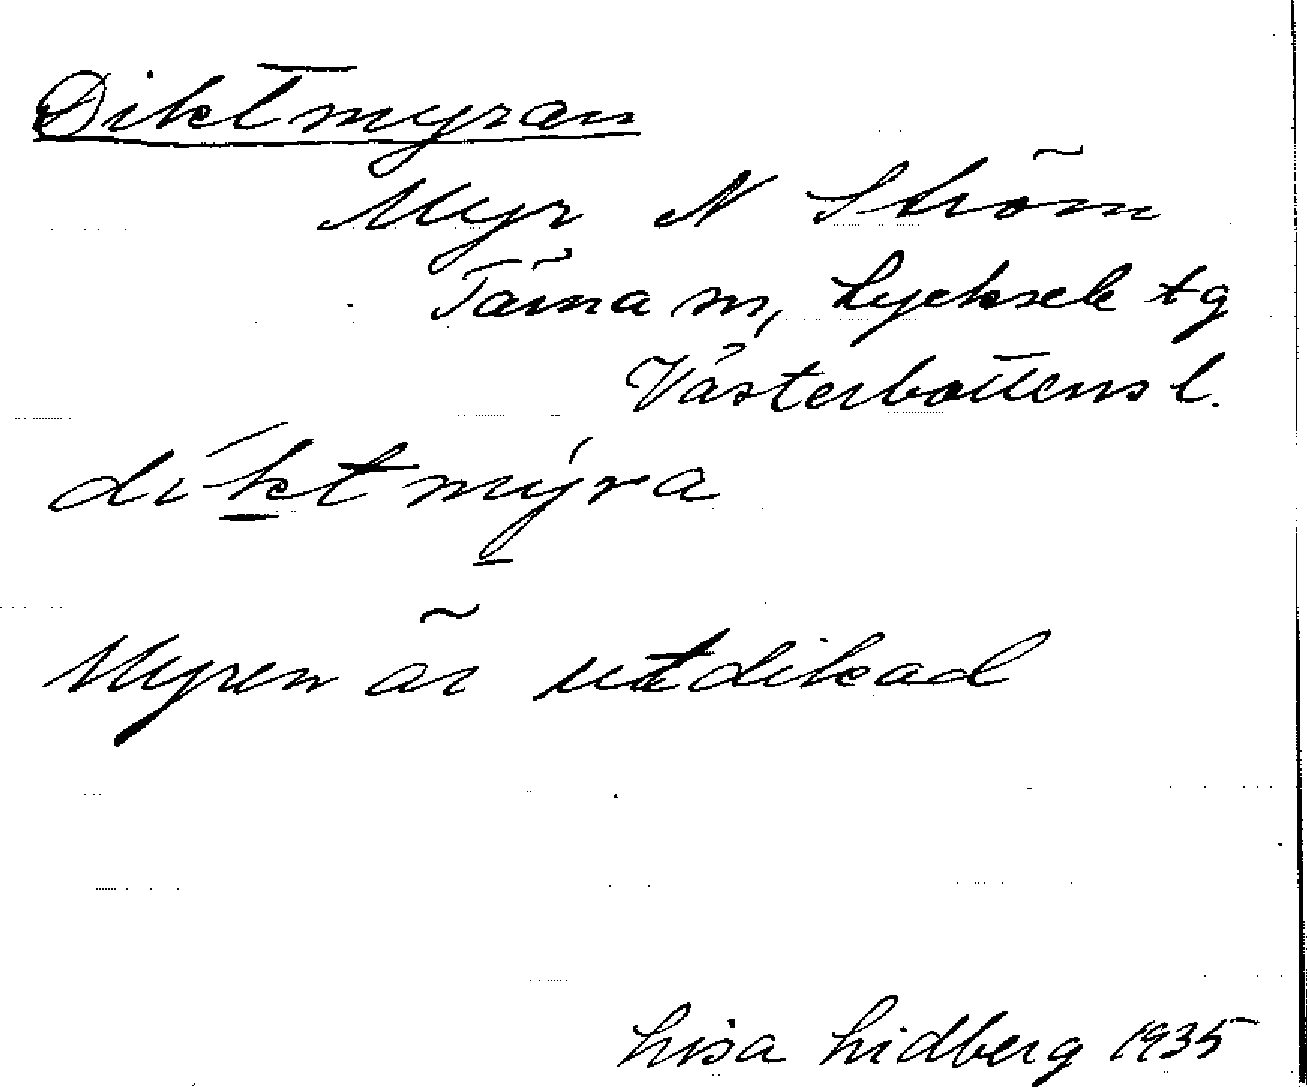 Diktmyran
Myr N Ström
Tärna sn, Lycksele tg
Västerbottens l.
diktmýra
Myren är utdikad
Lisa Lidberg 1935